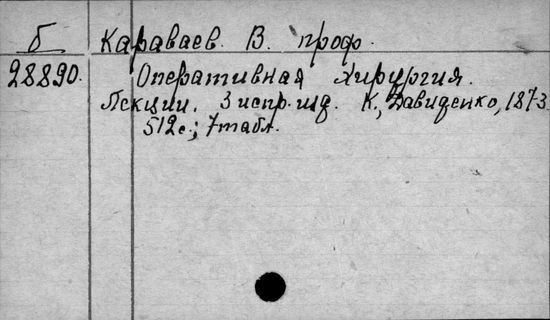 Б Караваев. В. проф.
28890. Оперативная хирургия.
Лекции. 3 испр. изд. К., Давиденко, 1873.
512 с.; 7 табл.